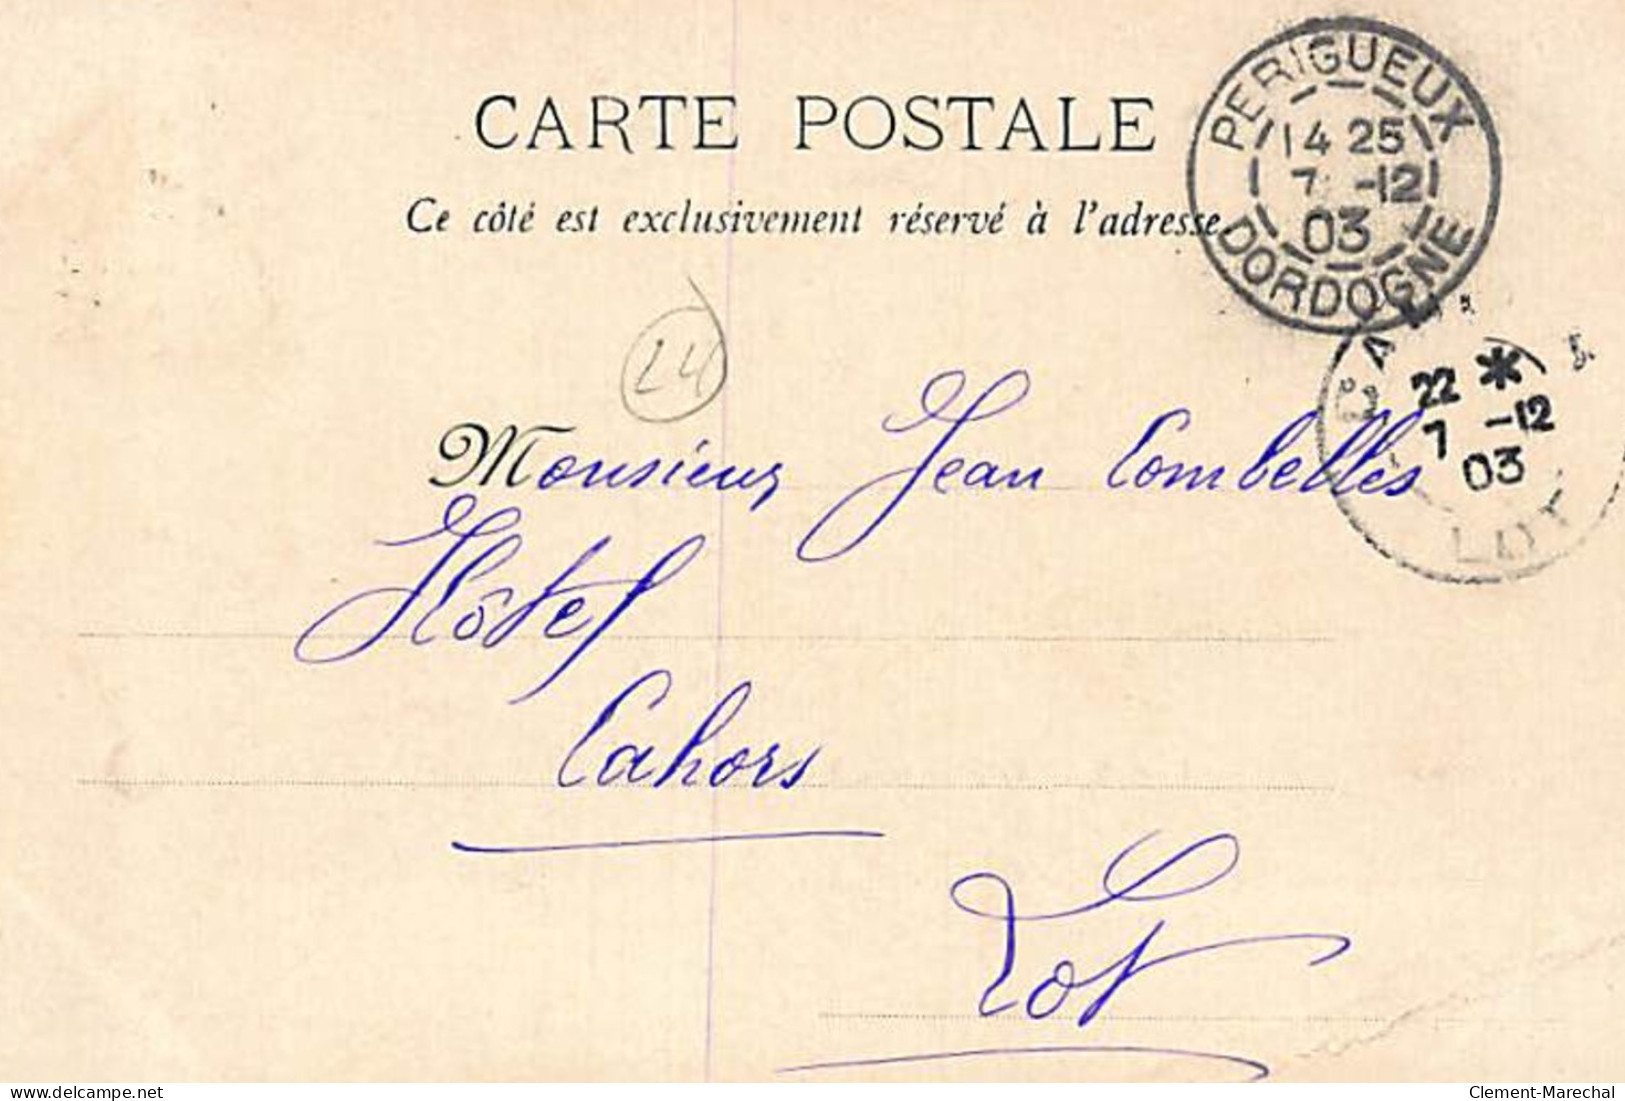 CARTE POSTALE
Ce côté est exclusivement réservé à l'adresse.
PERIGUEUX
14 25
7 -12
03
DORDOGNE
22 *
7 -12
03
LOT
24
Monsieur Jean Combelles
Hôtel
Cahors
Lot
delcampe.net
Clement-Marechal